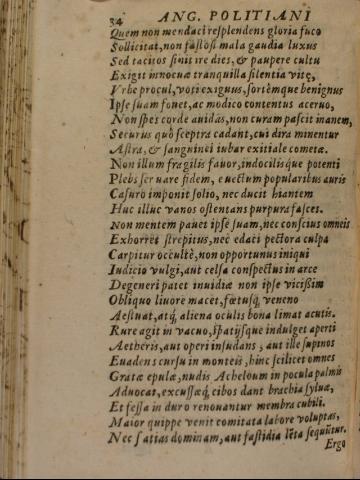 34 ANG. POLITIANI
Quem non mendaci resplendens gloria fuco
Sollicitat, non fastosi mala gaudia luxus
Sed tacitos sinit ire dies, & paupere cultu
Exigit innocuæ tranquilla silentia vitę,
Vrbe procul, voti exiguus, sortémque benignus
Ipse suam fouet, ac modico contentus aceruo,
Non spes corde auidas, non curam pascit inanem,
Securus quò sceptra cadant, cui dira minentur
Astra, & sanguinei iubar exitiale cometæ.
Non illum fragilis fauor, indocilisque potenti
Plebs seruare fidem, euectum popularibus auris
Casuro imponit solio, nec ducit hiantem
Huc illuc vanos ostentans purpura fasces.
Non mentem pauet ipse suam, nec conscius omneis
Exhorret strepitus, nec edaci pectora culpa
Carpitur occultè, non opportunus iniqui
Iudicio vulgi, aut celsa conspectus in arce
Degeneri patet inuidiæ non ipse vicißim
Obliquo liuore macet, fœtusq; veneno
Aestuat, atq; aliena oculis bona limat acutis.
Rure agit in vacuo, spatijsque indulget aperti
Aetheris, aut operi insudans, aut ille supinos
Euadens cursu in monteis, hinc scilicet omnes
Gratæ epulæ, nudis Acheloum in pocula palmis
Aduocat, excussæq; cibos dant brachia syluæ,
Et fessa in duro renouantur membra cubili.
Maior quippe venit comitata labore voluptas,
Nec satias dominam, aut fastidia lęta sequũtur.
Ergo